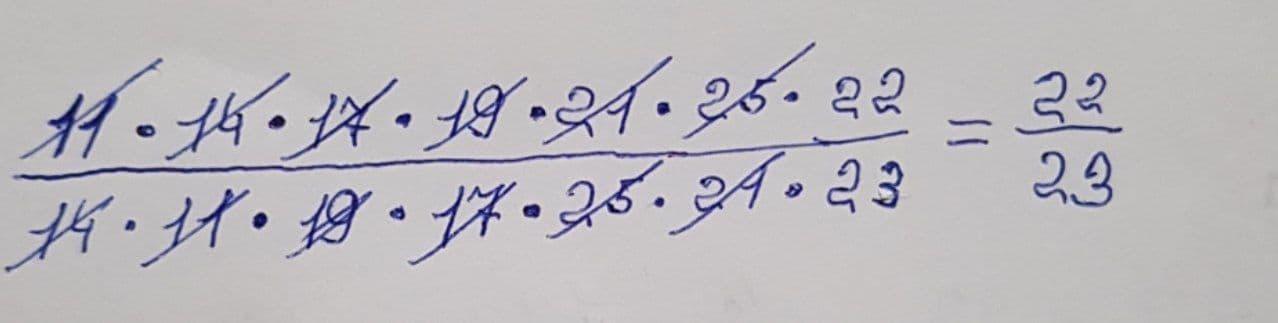 11 · 14 · 17 · 19 · 21 · 25 · 22 = 22
14 · 11 · 19 · 17 · 25 · 21 · 23 23